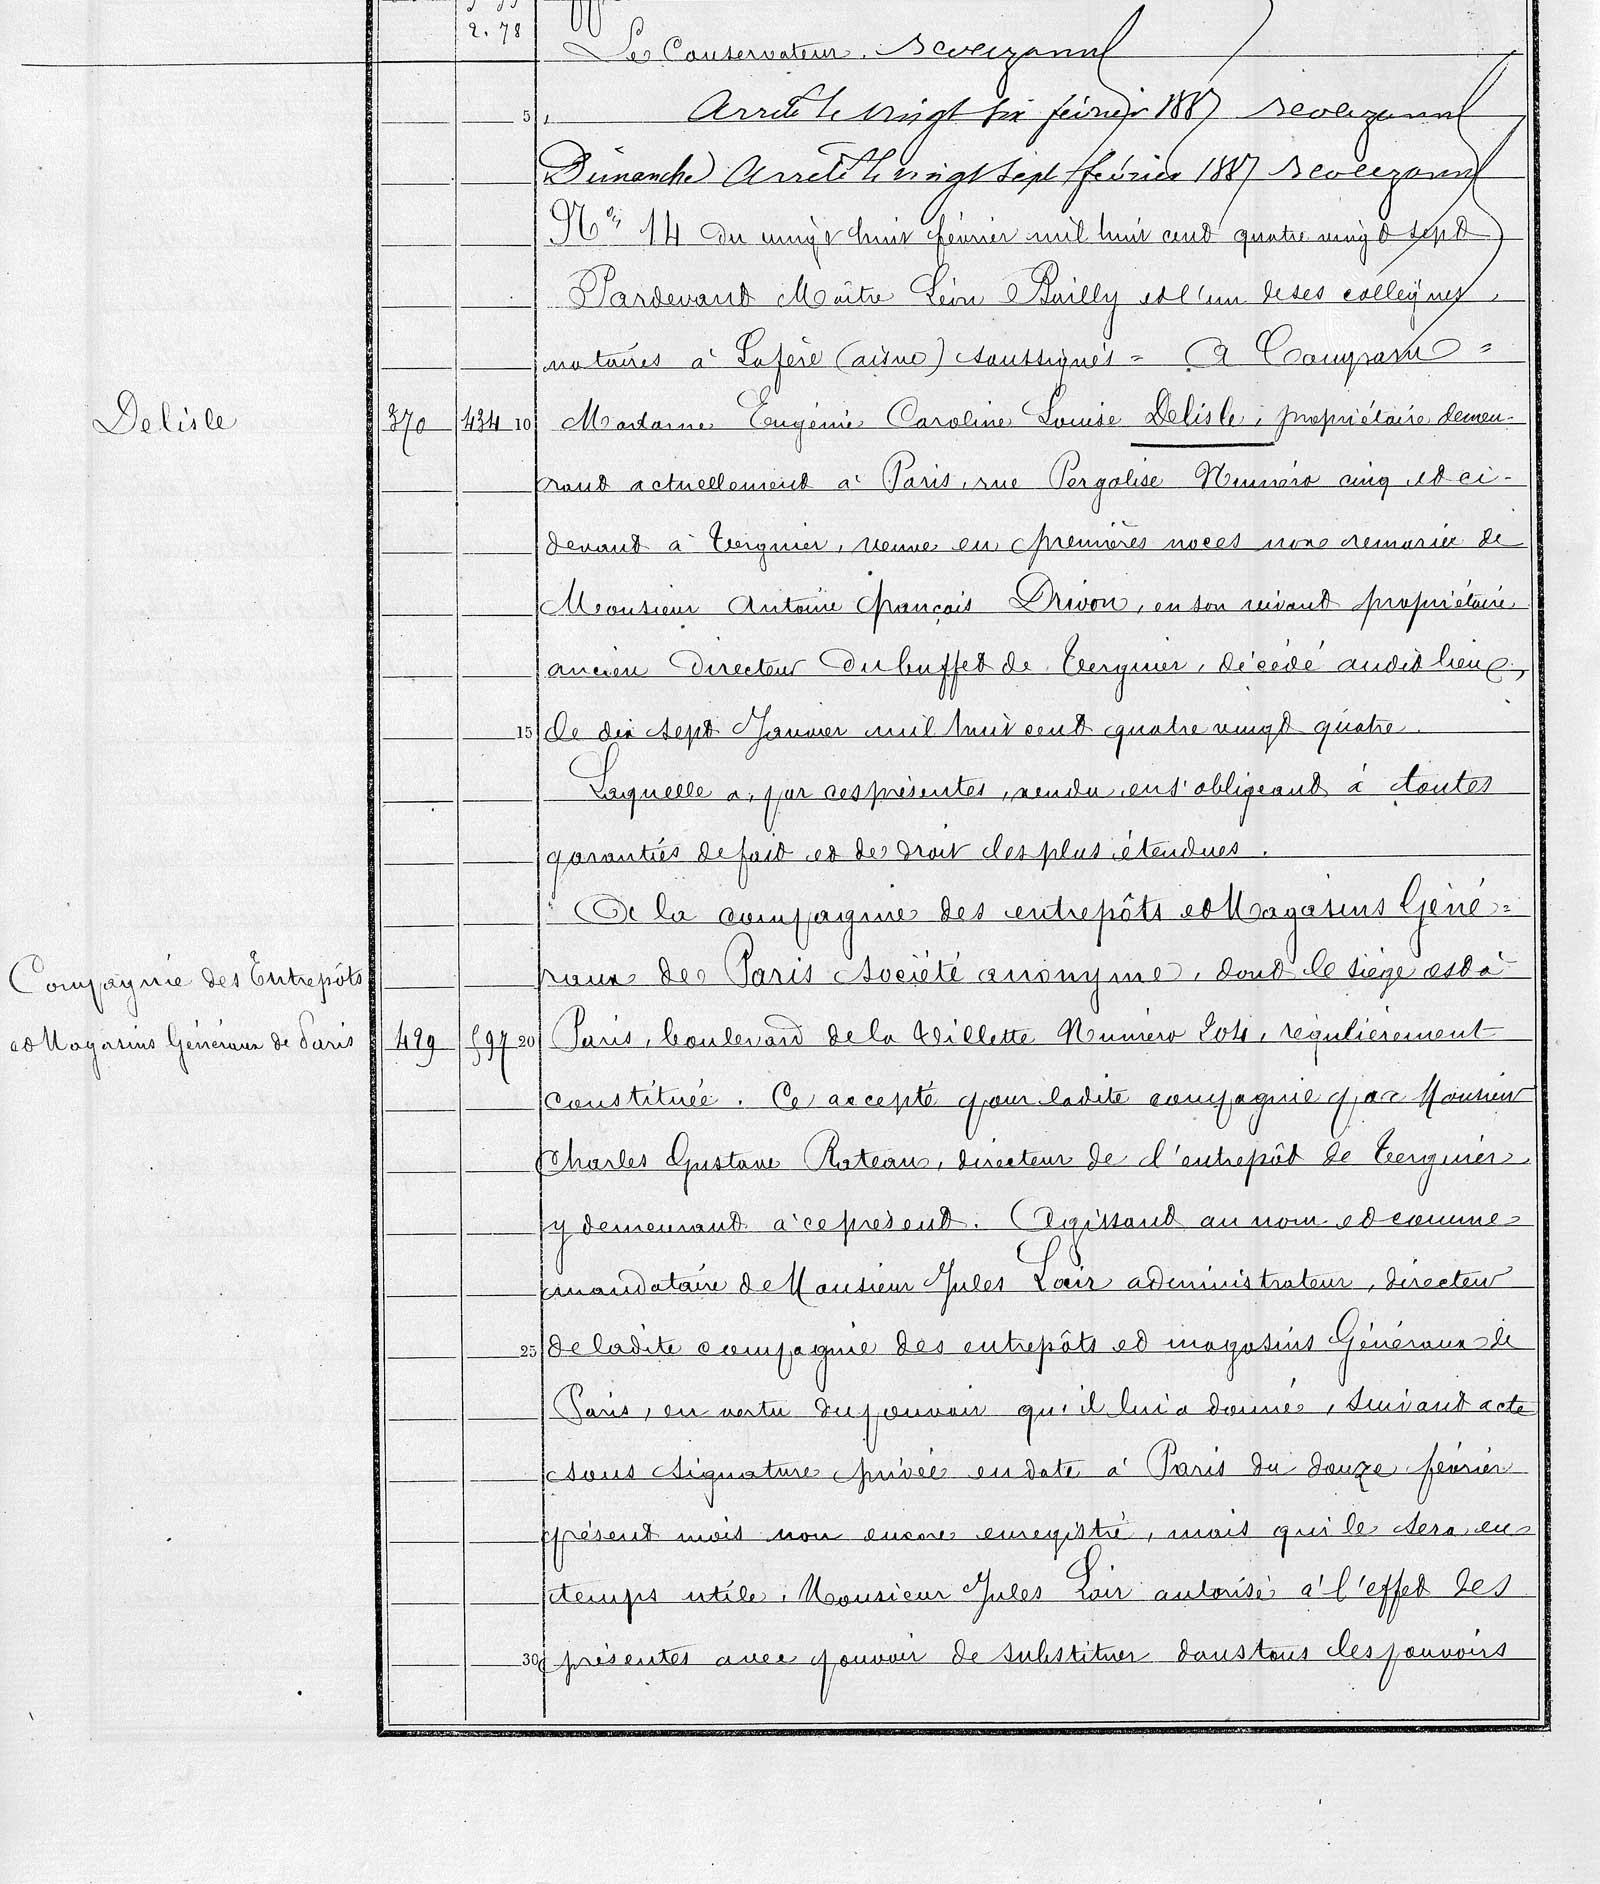 2. 78
Le Conservateur.
5
Arrêté le vingt six février 1887
Dimanche Arrêté le vingt sept février 1887
N° 14 du vingt huit février mil huit cent quatre vingt sept
Pardevant Maître Léon Bailly et l'un de ses collègues,
notaires à Lafère (aisne) soussignés = A Comparu =
Delisle 370 434 10 Madame Eugénie Caroline Louise Delisle, propriétaire demeu-
rant actuellement à Paris, rue Pergolise Numéro cinq et ci-
devant à Tergnier, veuve en premières noces non remariée de
Monsieur Antoine français Drivon, en son vivant propriétaire
ancien Directeur du buffet de Tergnier, décédé audit lieu,
15 le dix sept Janvier mil huit cent quatre vingt quatre.
Laquelle a, par ces présentes, vendu en s'obligeant à toutes
garanties de fait et de droit les plus étendues.
A la compagnie des entrepôts et Magasins Géné=
Compagnie des Entrepôts
raux de Paris société anonyme, dont le siège est à
et Magasins Généraux de Paris 479 597 20 Paris, boulevard de la Villette Numéro 204, régulièrement
constituée. Ce accepté pour ladite compagnie par Monsieur
Charles Gustave Rateau, directeur de l'entrepôt de Tergnier
y demeurant à ce présent. Agissant au nom et comme
mandataire de Monsieur Jules Loir administrateur, directeur
25 de ladite compagnie des entrepôts et magasins Généraux de
Paris, en vertu du pouvoir qu'il lui a donné, suivant acte
sous signature privée en date à Paris du douze février
présent mois non encore enregistré, mais qui le sera en
temps utile, Monsieur Jules Loir autorisé à l'effet des
30 présentes avec pouvoir de substituer dans tous les pouvoirs